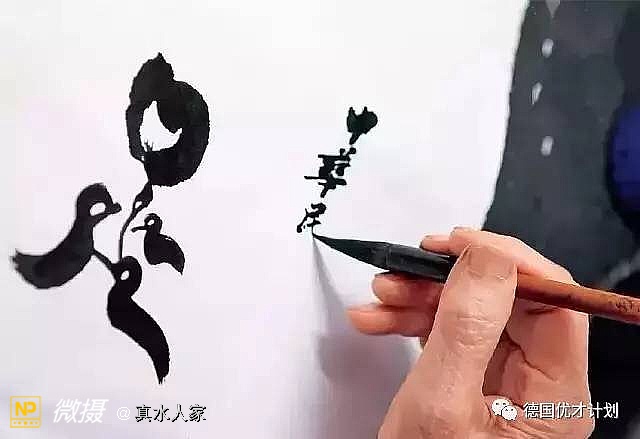 中華民
NP 微摄 @ 真水人家
德国优才计划